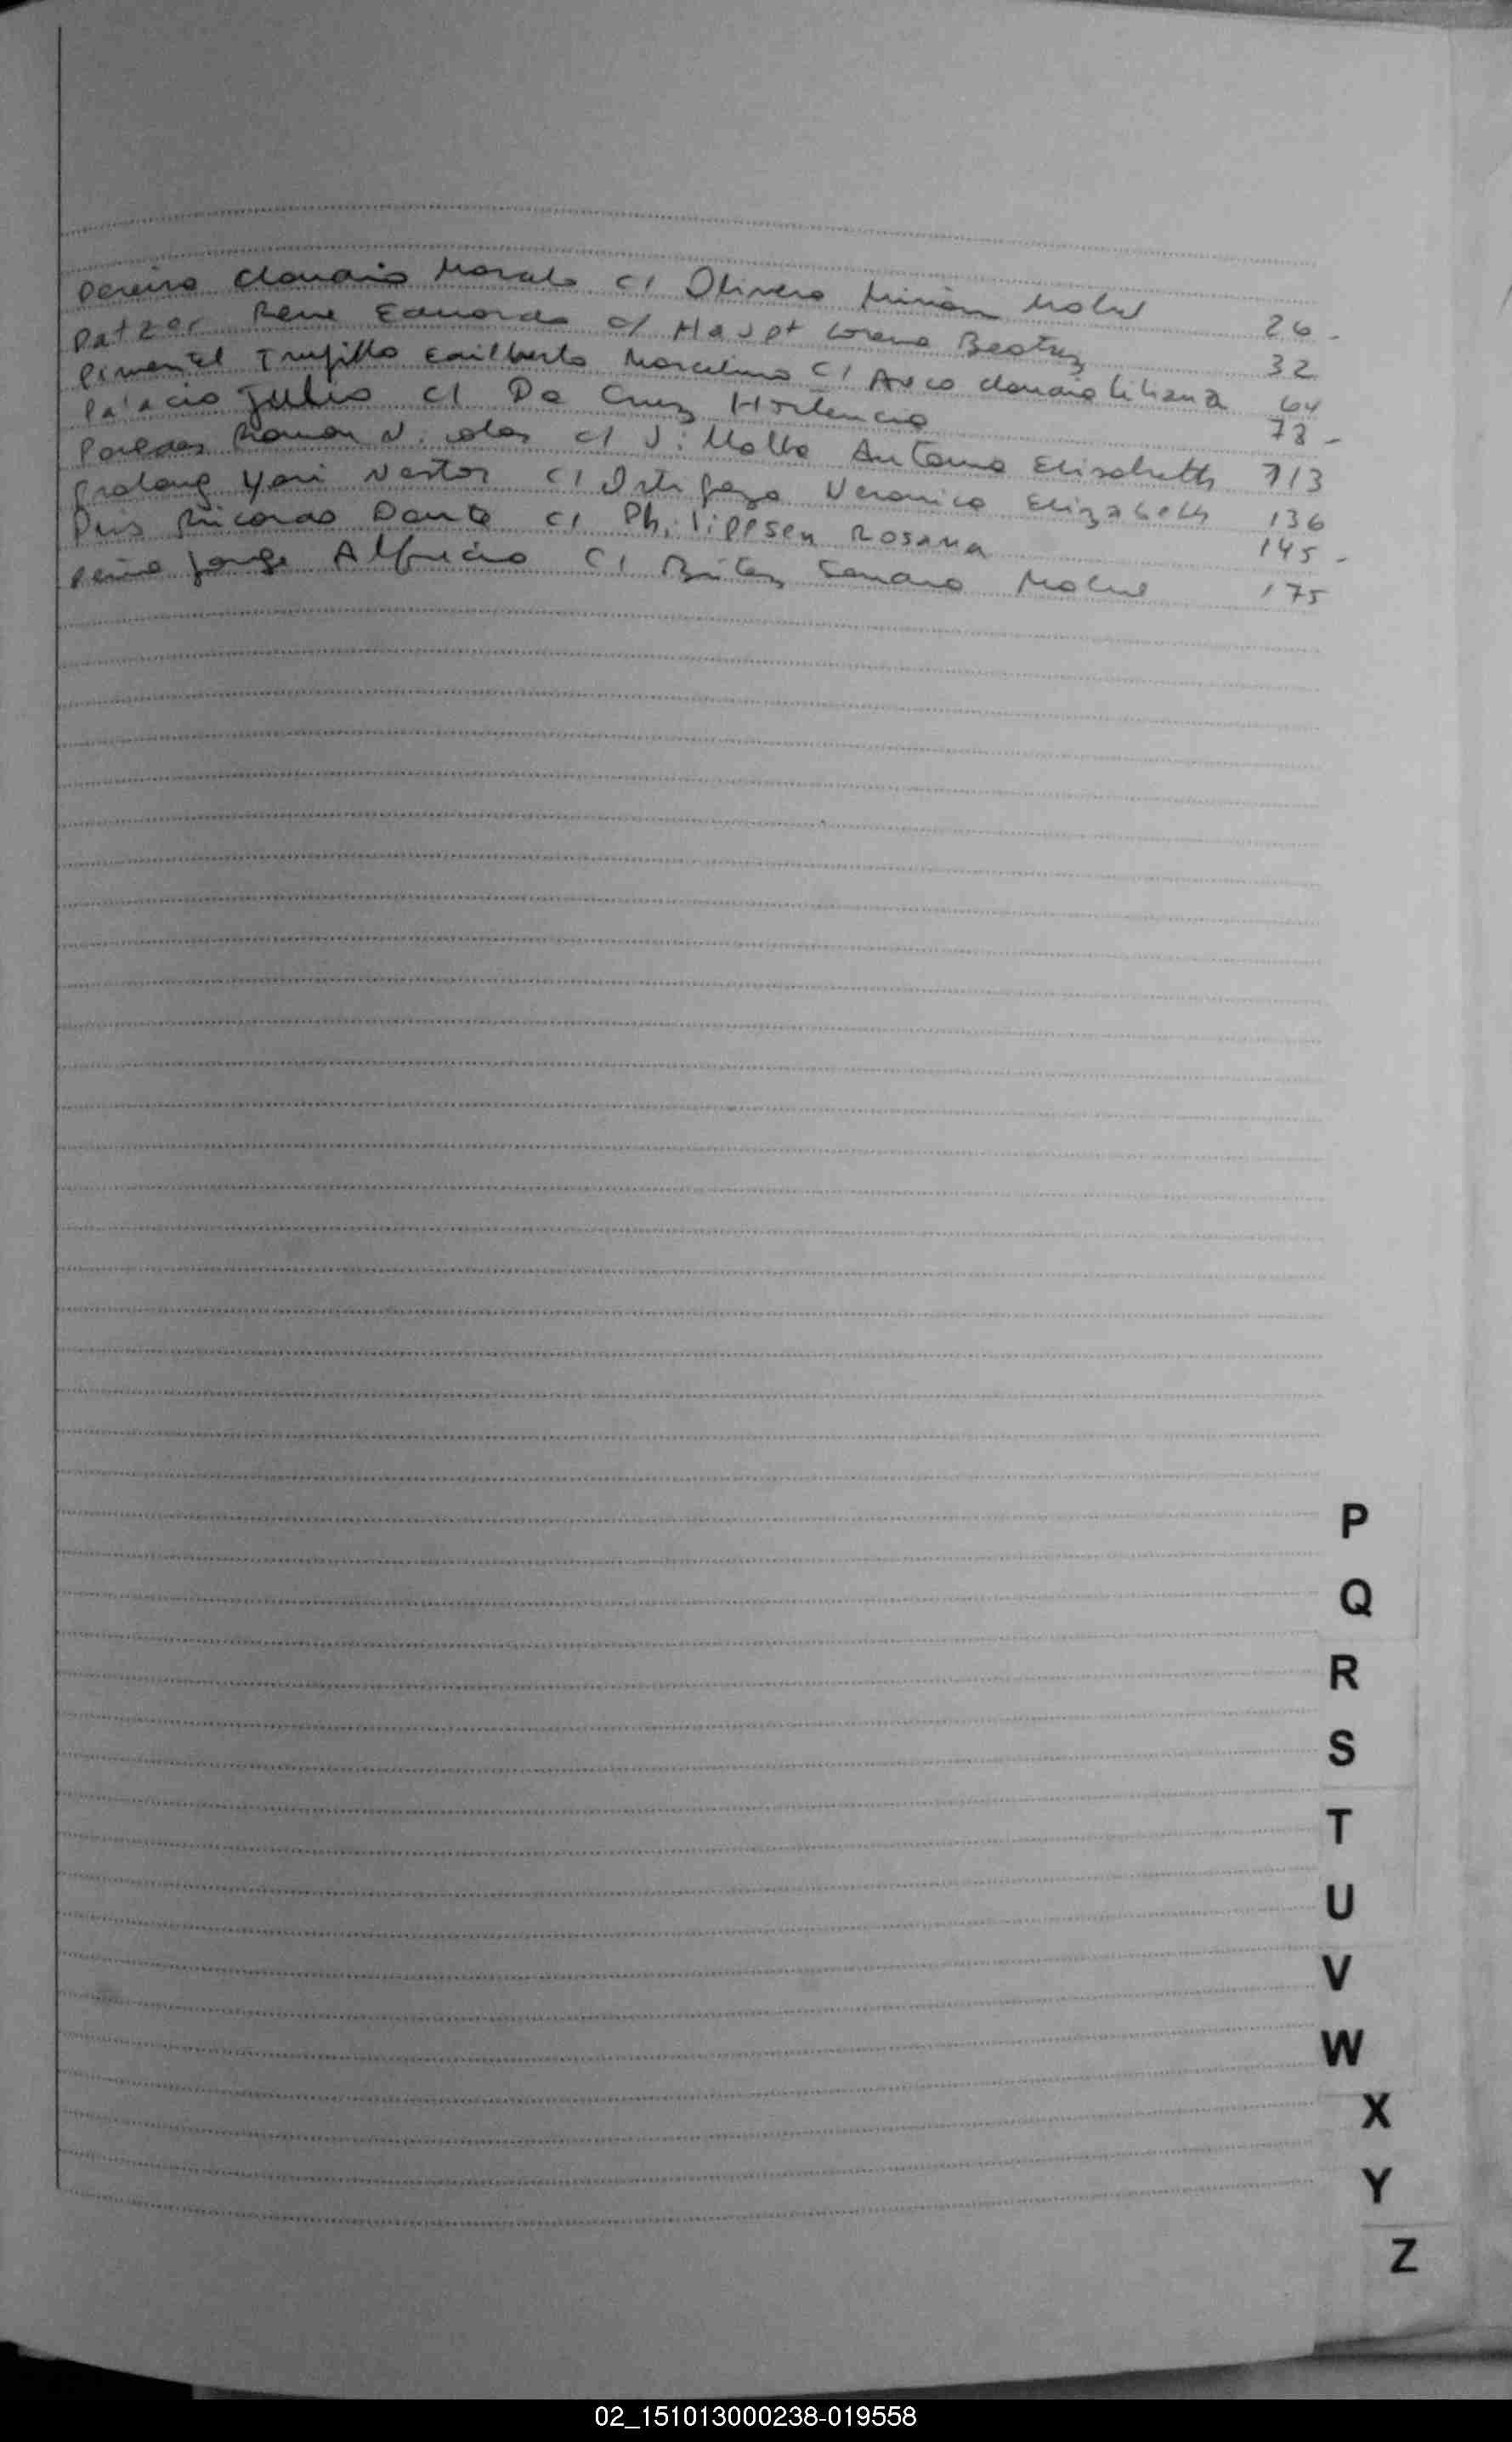 Pereira Claudio Marcelo c/ Olivera Mirian Mabel 26 -
Patzer Rene Eduardo c/ Haupt Lorena Beatriz 32
Pimentel Trujillo Edilberto Marcelino c/ Arco Claudia Liliana 64
Palacio Julio c/ Da Cruz Hortencia 78 -
Paredes Ramon Nicolas c/ Villalba Antonia Elisabeth 113
Yari Nestor c/ Veronica Elizabeth 136
Ricardo Dante c/ Philippsen Rosana 145 -
Jorge Alfredo c/ Sandra Mabel 175
P
Q
R
S
T
U
V
W
X
Y
Z
02_151013000238-019558